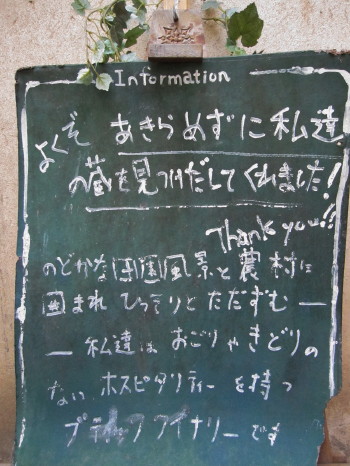 Information
よくぞ あきらめずに私達
の蔵を見つけだしてくれました!
Thank you!!
のどかな田園風景と農村に
囲まれ ひっそりとただずむ ―
― 私達は おごりやきどりの
ない、ホスピタリティーを持つ
ブティックワイナリーです